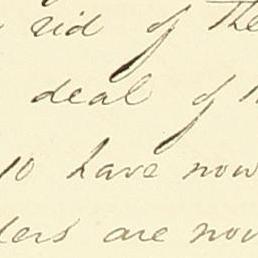 rid of the
deal of
have now
are now